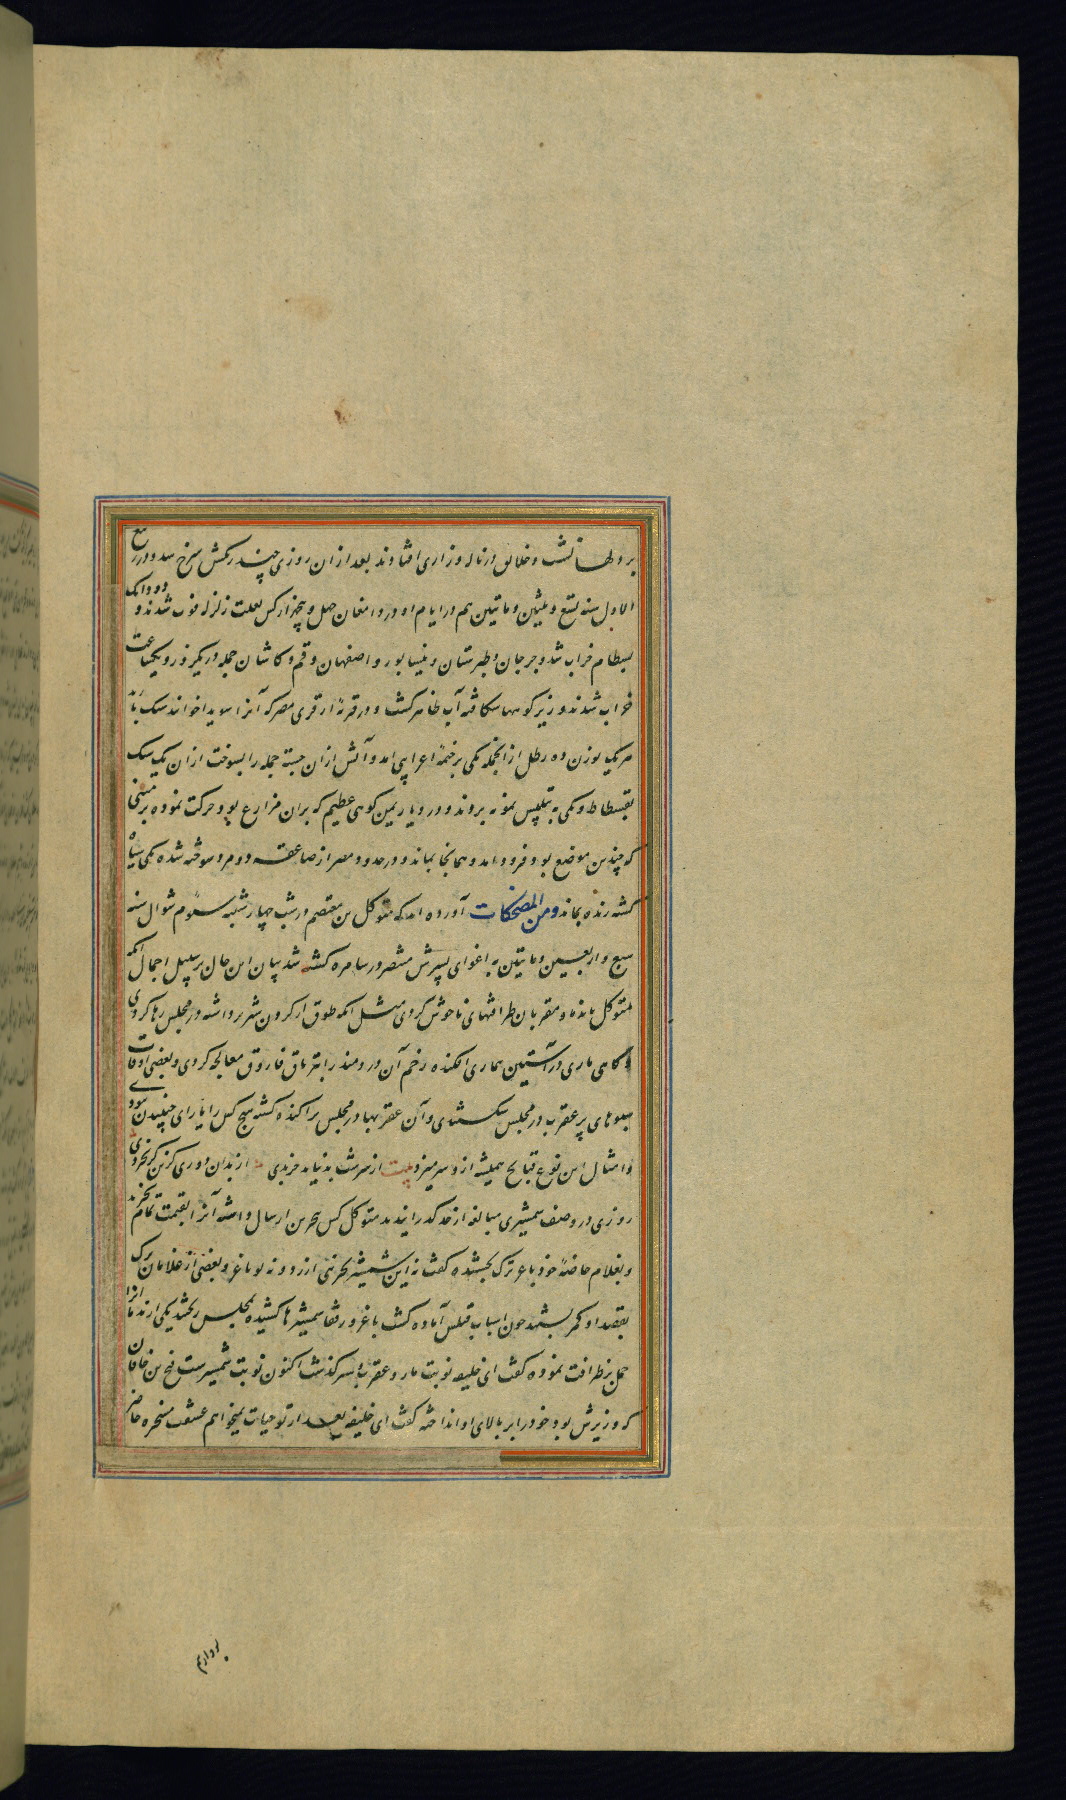 بر دلها نشست و خلایق در ناله و زاری افتادند بعد از ان روزی چند رنکش سرخ شد و در ربیع
الاول سنه تسع و ثلثین و ماتین هم در ایام او در دامغان چهل و پنجهزار کس بعلت زلزله فوت شدند و دو دانک
بسطام خراب شد و جرجان و طبرستان و نیسابور و اصفهان و قم و کاشان جمله در یکروز و یکساعت
خراب شدند و زیر کوهها شکافته آب ظاهر کشت و در قریهٔ از قری مصر که آنرا سویدا خوانند سنک بارید
هر یک بوزن ده رطل از انجمله یکی بر خیمهٔ اعرابی امد و آتش از ان جسته جمله را بسوخت از ان یک سنک
بفسطاط و یکی به تنیس بنمونه بردند و در دیار یمن کوهی عظیم که بران مزارع بود حرکت نموده بر
که چندین موضع بود فرود امد و همانجا بماند و در حدود مصر از صاعقه دو مرد سوخته شده یکی سیاه
کشته زنده بماند ومن المضحکات آورده اند که متوکل بن معتصم در شب چهارشنبه سوم شوال سنه
سبع و اربعین و ماتین به اغوای پسرش منتصر در سامره کشته شد بیان این حال بر سبیل اجمال انکه
متوکل با ندما و مقربان ظرافتهای ناخوش کردی مثل انکه طوق از کردن شیر برداشته در مجلس رها کردی
و کاهی ماری در آستین بیماری افکنده زخم آن دردمند را بتریاق فاروق معالجه کردی و بعضی اوقات
سبوهای پر عقرب در مجلس شکستندی و آن عقربها در مجلس پراکنده کشته هیچ کس را یارای جنبیدن نبودے
و امثال این نوع قبایح همیشه از و سر میزد بیت از سرشت بد نیاید جز بدی از بدان دوری کزین کر بخردی
روزی در وصف شمشیری مبالغه از حد کدرانیدند متوکل کس ببحرین ارسال داشته آنرا بقیمت تمام بخرید
و بغلام خاصهٔ خود باغر ترک بخشیده کفت به این شمشیر بحز تنی ارزد و نه تو باغر و بعضی از غلامان ترک
بقصد او کمر بستند چون اسباب قتلش آماده کشت باغر و رفقا شمشیرها کشیده بمجلس ریختند یکی از ندما انرا
حمل بر ظرافت نموده کفت ای خلیفه نوبت مار و عقرب بسر کذشت اکنون نوبت شمشیرست فتح بن خاقان
که وزیرش بود خود را بر بالای او انداخته کفت ای خلیفه بعد از تو حیات نمیخواهم مسخره حاضر
بردارم